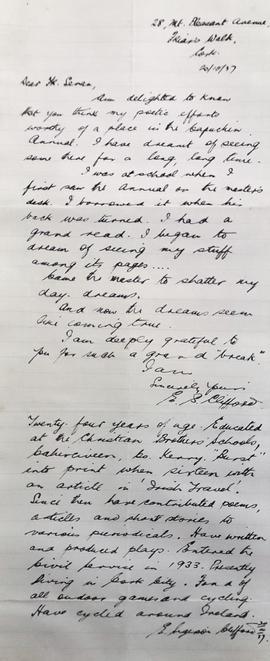 28, Mt. Pleasant Avenue,
Friars Walk,
Cork.
20/10/37
Dear Fr. Senan,
Am delighted to know
that you think my poetic efforts
worthy of a place in the Capuchin
Annual. I have dreamt of seeing
some there for a long, long time.
I was at school when I
first saw the Annual on the master's
desk. I borrowed it when his
back was turned. I had a
grand read. I began to
dream of seeing my stuff
among its pages....
Came the master to shatter my
day dreams.
And now the dreams seem
like coming true.
I am deeply grateful to
you for such a grand "break"
I am
Sincerely Yours
E. S. Clifford
Twenty-four years of age. Educated
at the Christian Brothers Schools,
Cahirciveen, Co. Kerry. "Burst"
into print when sixteen with
an article in "Irish Travel".
Since then have contributed poems,
articles and short stories to
various periodicals. Have written
and produced plays. Entered the
Civil Service in 1933. Presently
living in Cork City. Fond of
all outdoor games and cycling.
Have cycled around Ireland.
Clifford